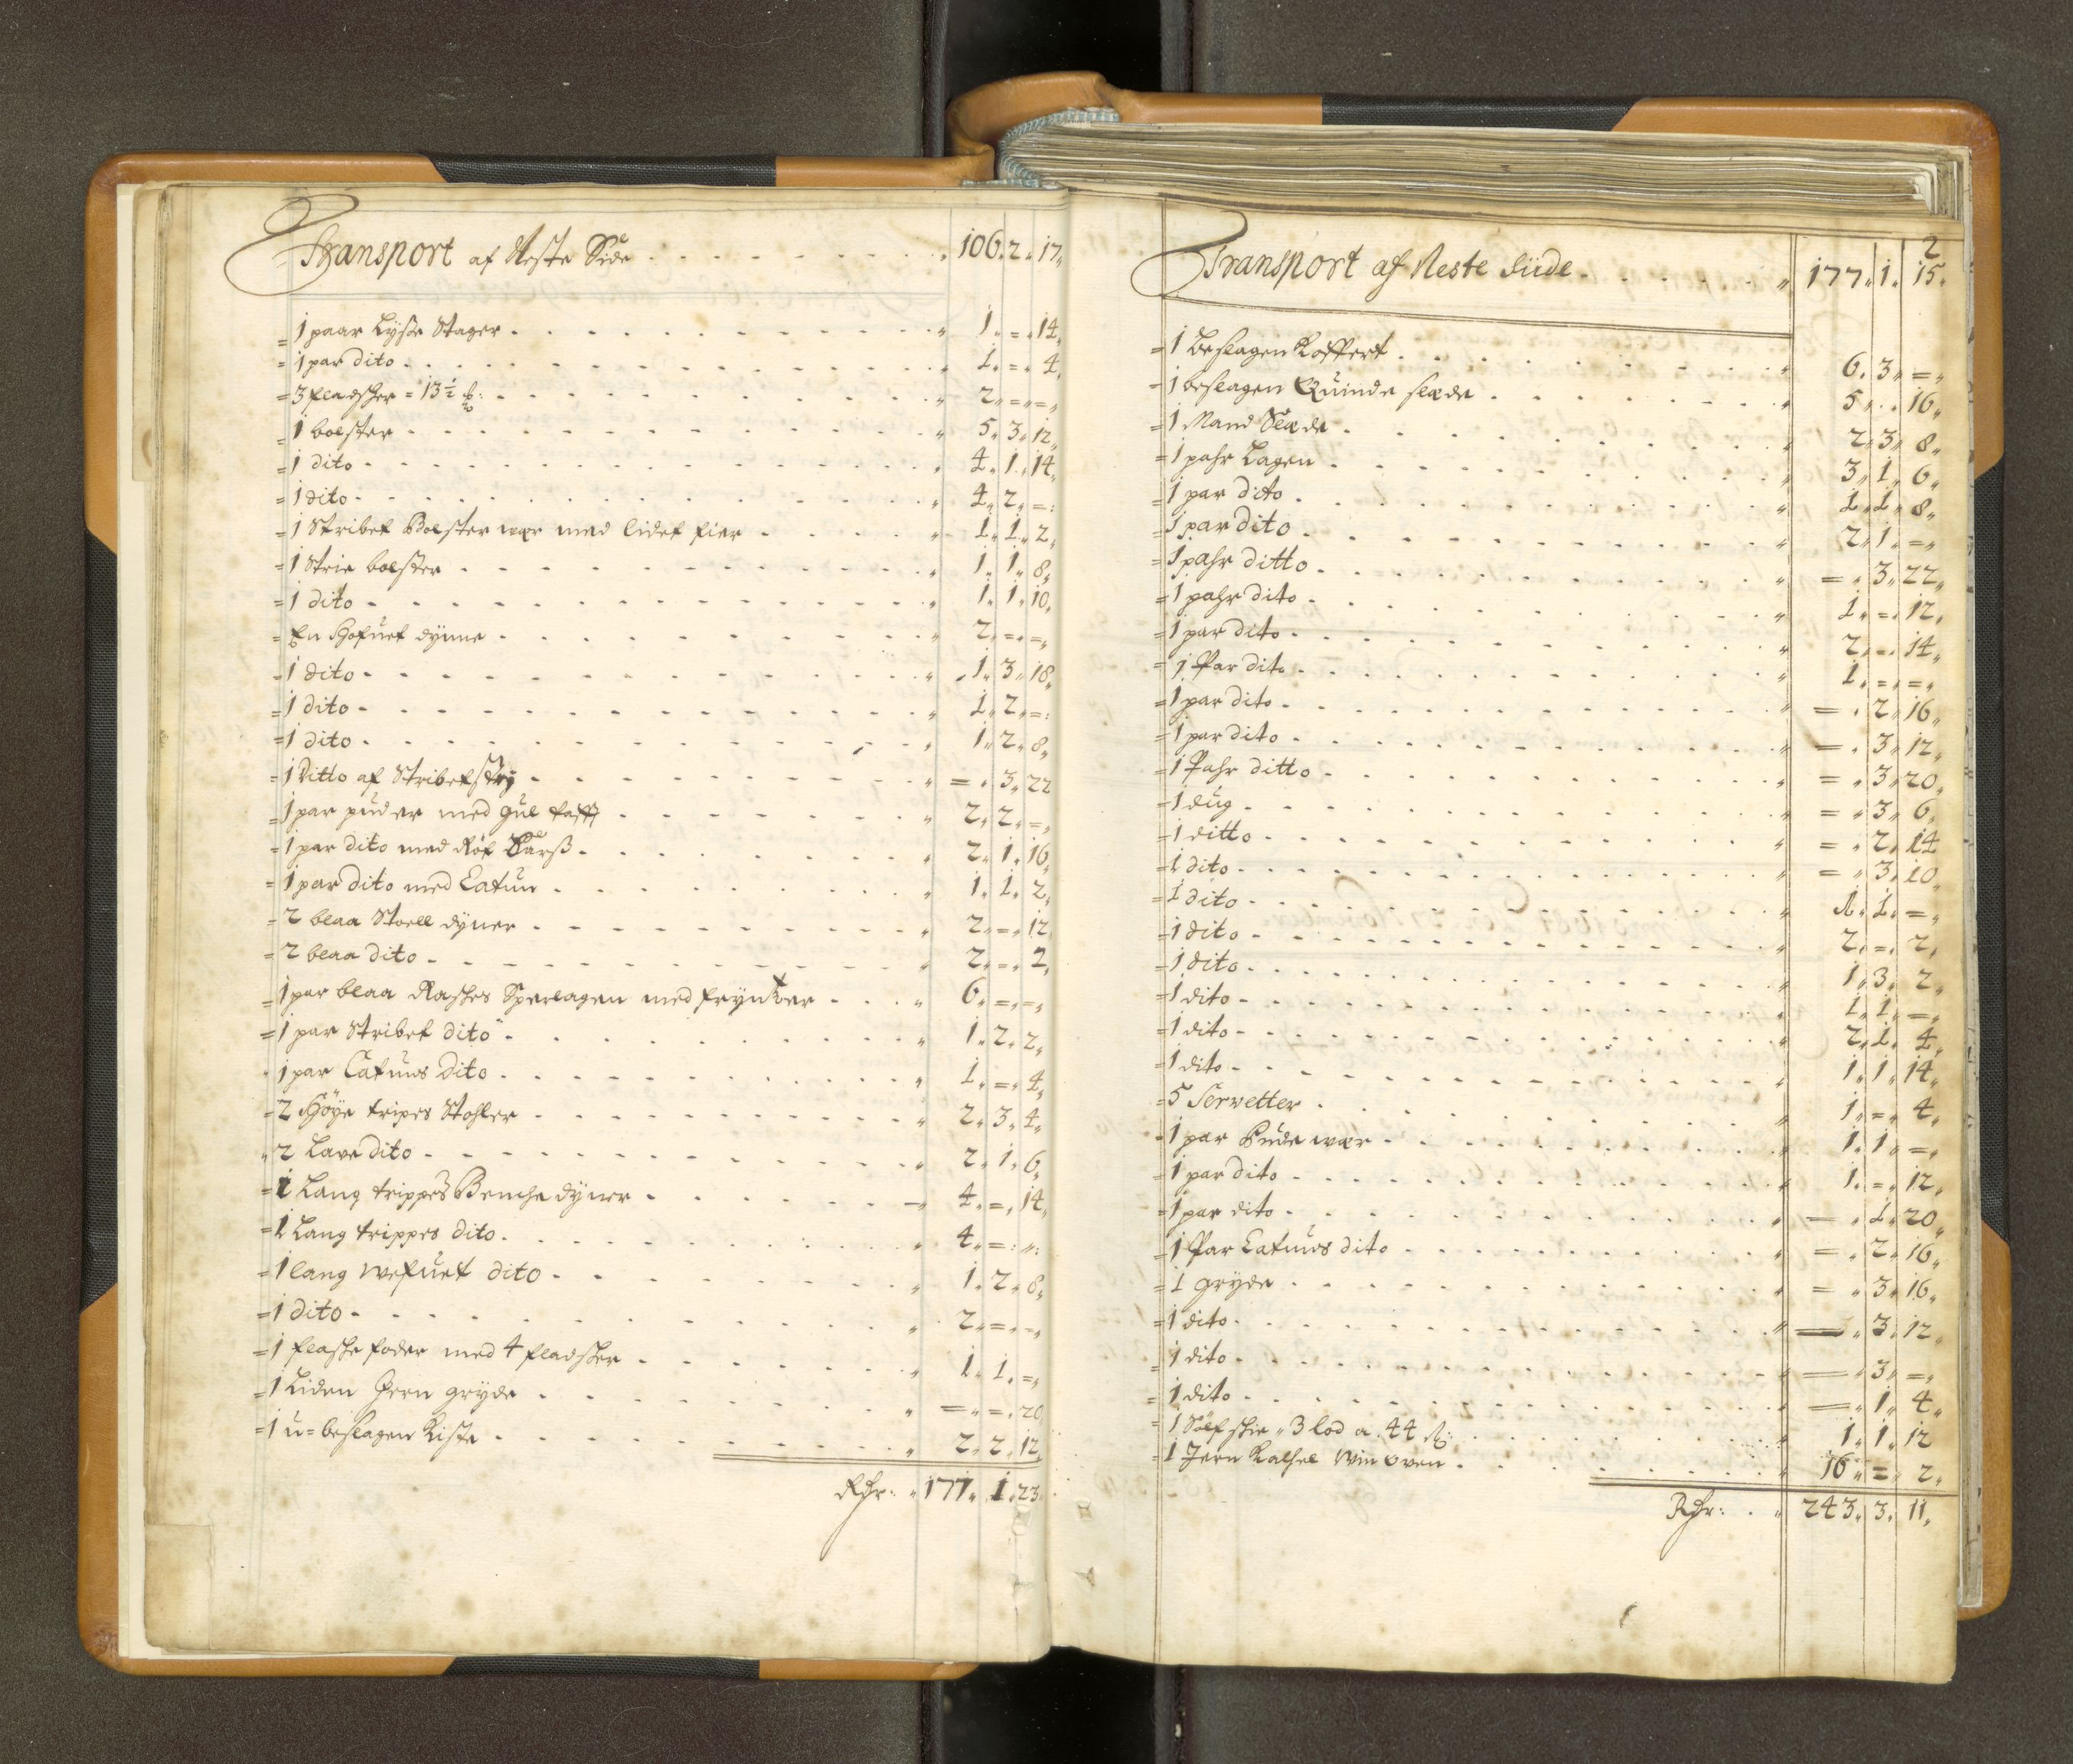 Transport af Neste Side " 106. 2. 17
= 1 paar Lysse Stager " 1. =. 14
= 1 par dito " 1. =. 4
= 3 fladsher = 13½ ℔: " 2. =. =
= 1 bolster " 5. 3. 12
= 1 dito " 4. 1. 14
= 1 dito " 4. 2. =
= 1 Stribet Bolster war med lidet fier " 1. 1. 2
= 1 Strie bolster " 1. 1. 8
= 1 dito " 1. 1. 10
= En Hofuet dynne " 2. =. =
= 1 dito " 1. 3. 18
= 1 dito " 1. 2. =
= 1 dito " 1. 2. 8
= 1 Ditto af Stribet stry " =. 3. 22
= 1 par puder med gul taft " 2. 2. =
= 1 par dito med Röt " 2. 1. 16
= 1 par dito med Catun " 1. 1. 2
= 2 blaa Stoell dyner " 2. =. 12
= 2 blaa dito " 2. =. 2
= 1 par blaa Raskes Sperlagen med fryntzer " 6. =. =
= 1 par Stribet dito " 1. 2. 2
" 1 par Catuns Dito " 1. =. 4
= 2 Höye tripes Stohler " 2. 3. 4
" 2 Lave dito " 2. 1. 6
= 1 Lang trippes Benche dyner 4. =. 14
= 1 Lang trippes dito " 4. =: ":
= 1 lang wefuet dito " 1. 2. 8
= 1 dito " 2. =. =
= 1 flashe foder med 4 fladsher " 1. 1. =
= 1 Liden Jern gryde " =. =. 20
= 1 u=beslagen Kiste " 2. 2. 12
Rdr: " 177. 1. 23
2
Transport af Neste Siide " 177. 1. 15
= 1 beslagen Koffert " 6. 3. =
= 1 beslagen Quinde slæde " 5. . 16
= 1 Mand Slæde " 2. 3. 8
= 1 pahr Lagen " 3. 1. 6
= 1 par dito " 1. 1. 8
= 1 par dito " 2. 1. =
= 1 pahr ditto " =. 3. 22
= 1 pahr dito " 1. =. 12
= 1 par dito " 2. =. 14
= 1 Par dito " 1. =. =
= 1 par dito " =. 2. 16
= 1 par dito " =. 3. 12
= 1 Pahr ditto " =. 3. 20
= 1 dug " =. 3. 6
= 1 ditto " =. 2. 14
= 1 dito " =. 3. 10
= 1 dito " 1. 1. =
= 1 dito " 2. =. 2
= 1 dito " 1. 3. 2
= 1 dito " 1. 1. =
= 1 dito " 2. 1. 4
= 1 dito " 1. 1. 14
= 5 Servetter " 1. =. 4
= 1 par Pude war " 1. 1. =
= 1 par dito " 1. =. 12
= 1 par dito " =. 1. 20
= 1 Par Catuns dito " =. 2. 16
= 1 gryde " =. 3. 16
= 1 dito " =. 3. 12
= 1 dito " =. 3. =
= 1 dito " =. 1. 4
= 1 Sölf skie " 3 lod a. 44 ß: " 1. 1. 12
= 1 Jern Kalhel Win oven " 16. =. 2
Rdr: " 243. 3. 11